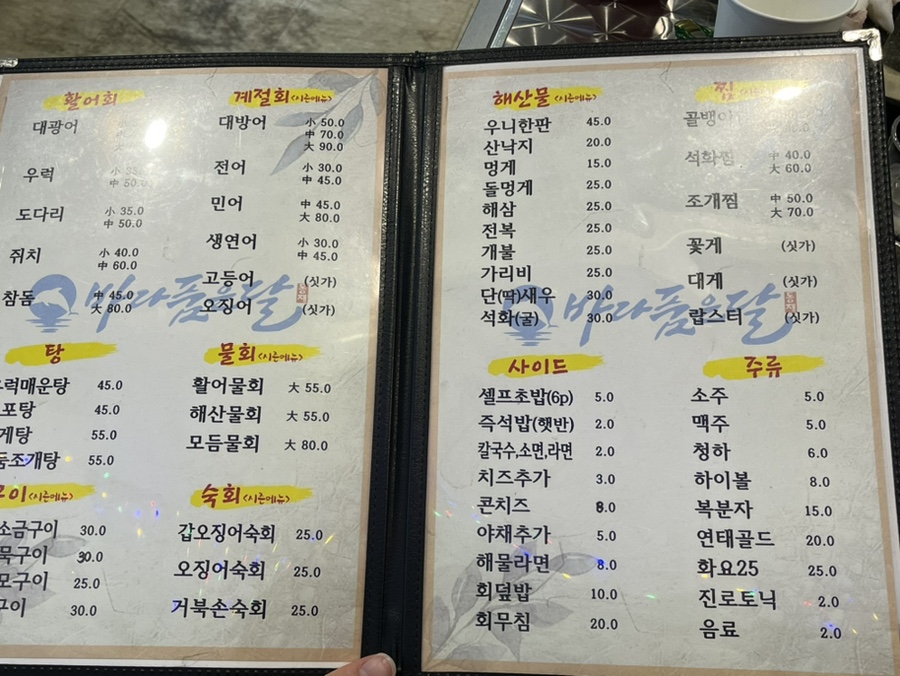 활어회
대광어
우럭
小 35.0
中 50.0
도다리
小 35.0
中 50.0
쥐치
小 40.0
中 60.0
참돔
中 45.0
大 80.0
계절회 <시즌메뉴>
대방어
小 50.0
中 70.0
大 90.0
전어
小 30.0
中 45.0
민어
中 45.0
大 80.0
생연어
小 30.0
中 45.0
고등어 (싯가)
오징어 (싯가)
바다품은달
탕
우럭매운탕 45.0
포탕 45.0
게탕 55.0
조개탕 55.0
물회 <시즌메뉴>
활어물회 大 55.0
해산물회 大 55.0
모듬물회 大 80.0
구이 <시즌메뉴>
소금구이 30.0
묵구이 30.0
모구이 25.0
구이 30.0
숙회 <시즌메뉴>
갑오징어숙회 25.0
오징어숙회 25.0
거북손숙회 25.0
해산물 <시즌메뉴>
우니한판 45.0
산낙지 20.0
멍게 15.0
돌멍게 25.0
해삼 25.0
전복 25.0
개불 25.0
가리비 25.0
단(딱)새우 30.0
석화(굴) 30.0
찜
골뱅이
석화찜
中 40.0
大 60.0
조개찜
中 50.0
大 70.0
꽃게 (싯가)
대게 (싯가)
랍스터 (싯가)
바다품은달
사이드
셀프초밥(6p) 5.0
즉석밥(햇반) 2.0
칼국수,소면,라면 2.0
치즈추가 3.0
콘치즈 8.0
야채추가 5.0
해물라면 8.0
회덮밥 10.0
회무침 20.0
주류
소주 5.0
맥주 5.0
청하 6.0
하이볼 8.0
복분자 15.0
연태골드 20.0
화요25 25.0
진로토닉 2.0
음료 2.0